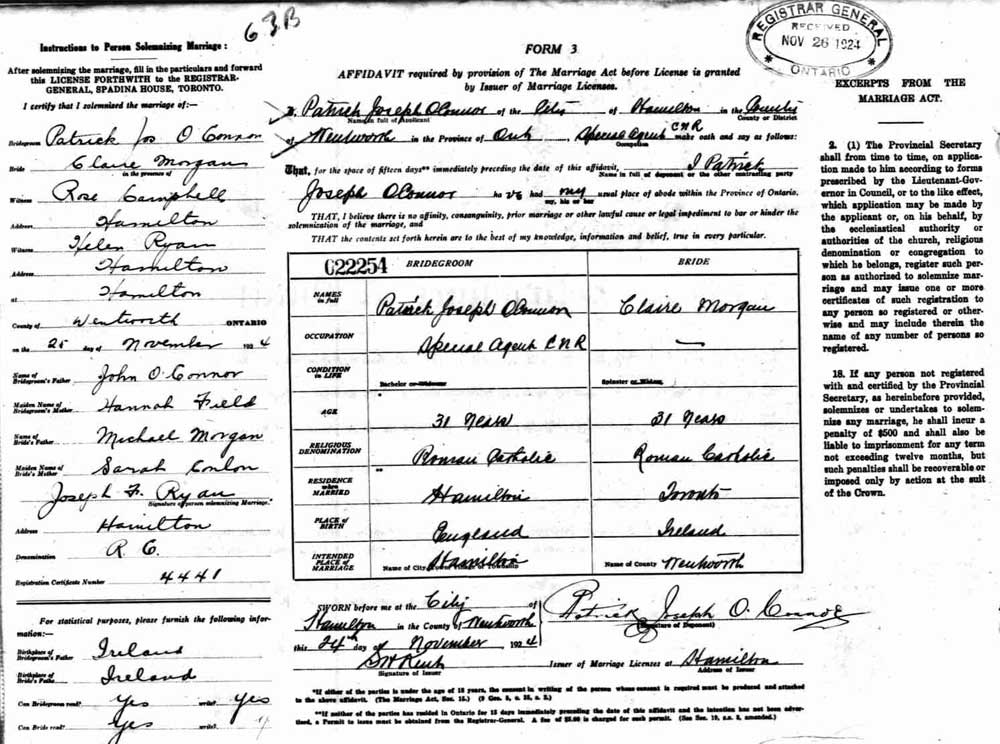 63B
Instructions to Person Solemnizing Marriage:
After solemnizing the marriage, fill in the particulars and forward
this LICENSE FORTHWITH to the REGISTRAR-
GENERAL, SPADINA HOUSE, TORONTO.
I certify that I solemnized the marriage of:—
Bridegroom Patrick Jos O'Connor
Bride Claire Morgan
in the presence of
Witness Rose Campbell
Address Hamilton
Witness Helen Ryan
Address Hamilton
at Hamilton
County of Wentworth ONTARIO
on the 25 day of November 1924
Name of Bridegroom's Father John O'Connor
Maiden Name of Bridegroom's Mother Hannah Field
Name of Bride's Father Michael Morgan
Maiden Name of Bride's Mother Sarah Conlon
Joseph F. Ryan
Signature of person solemnizing Marriage.
Address Hamilton
Denomination R. C.
Registration Certificate Number 4441
For statistical purposes, please furnish the following infor-
mation:—
Birthplace of Bridegroom's Father Ireland
Birthplace of Bride's Father Ireland
Can Bridegroom read? Yes write? Yes
Can Bride read? Yes write?
FORM 3
AFFIDAVIT required by provision of The Marriage Act before License is granted
by Issuer of Marriage Licenses.
I, Patrick Joseph O'Connor of the City of Hamilton in the County
Name in full of Applicant County or District
of Wentworth in the Province of Ont, Special Agent CNR make oath and say as follows:
Occupation
That, for the space of fifteen days** immediately preceding the date of this affidavit, I Patrick
Name in full of deponent or the other contracting party
Joseph O'Connor have had my usual place of abode within the Province of Ontario.
my, his or her
THAT, I believe there is no affinity, consanguinity, prior marriage or other lawful cause or legal impediment to bar or hinder the
solemnization of the marriage, and
THAT the contents set forth herein are to the best of my knowledge, information and belief, true in every particular.
022254 BRIDEGROOM BRIDE
NAMES in full Patrick Joseph O'Connor Claire Morgan
OCCUPATION Special Agent CNR —
CONDITION in LIFE Bachelor or Widower Spinster or Widow
AGE 31 Years 31 Years
RELIGIOUS DENOMINATION Roman Catholic Roman Catholic
RESIDENCE when MARRIED Hamilton Toronto
PLACE of BIRTH England Ireland
INTENDED PLACE of MARRIAGE Name of City Hamilton Name of County Wentworth
SWORN before me at the City of
Hamilton in the County of Wentworth
this 24th day of November 1924
Signature of Issuer
Patrick Joseph O'Connor
(Signature of Deponent)
Issuer of Marriage Licenses at Hamilton
Address of Issuer
*If either of the parties is under the age of 18 years, the consent in writing of the person whose consent is required must be produced and attached
to the above affidavit. (The Marriage Act, Sec. 15.)
**If neither of the parties has resided in Ontario for 15 days immediately preceding the date of this affidavit and the intention has not been adver-
tised, a Permit to issue must be obtained from the Registrar-General. A fee of $5.00 is charged for such permit.
REGISTRAR GENERAL
RECEIVED
NOV 26 1924
ONTARIO
EXCERPTS FROM THE
MARRIAGE ACT.
2. (1) The Provincial Secretary
shall from time to time, on applica-
tion made to him according to forms
prescribed by the Lieutenant-Gov-
ernor in Council, or to the like effect,
which application may be made by
the applicant or, on his behalf, by
the ecclesiastical authority or
authorities of the church, religious
denomination or congregation to
which he belongs, register such per-
son as authorized to solemnize mar-
riage and may issue one or more
certificates of such registration to
any person so registered or other-
wise and may include therein the
name of any number of persons so
registered.
18. If any person not registered
with and certified by the Provincial
Secretary, as hereinbefore provided,
solemnizes or undertakes to solem-
nize any marriage, he shall incur a
penalty of $500 and shall also be
liable to imprisonment for any term
not exceeding twelve months, but
such penalties shall be recoverable or
imposed only by action at the suit
of the Crown.